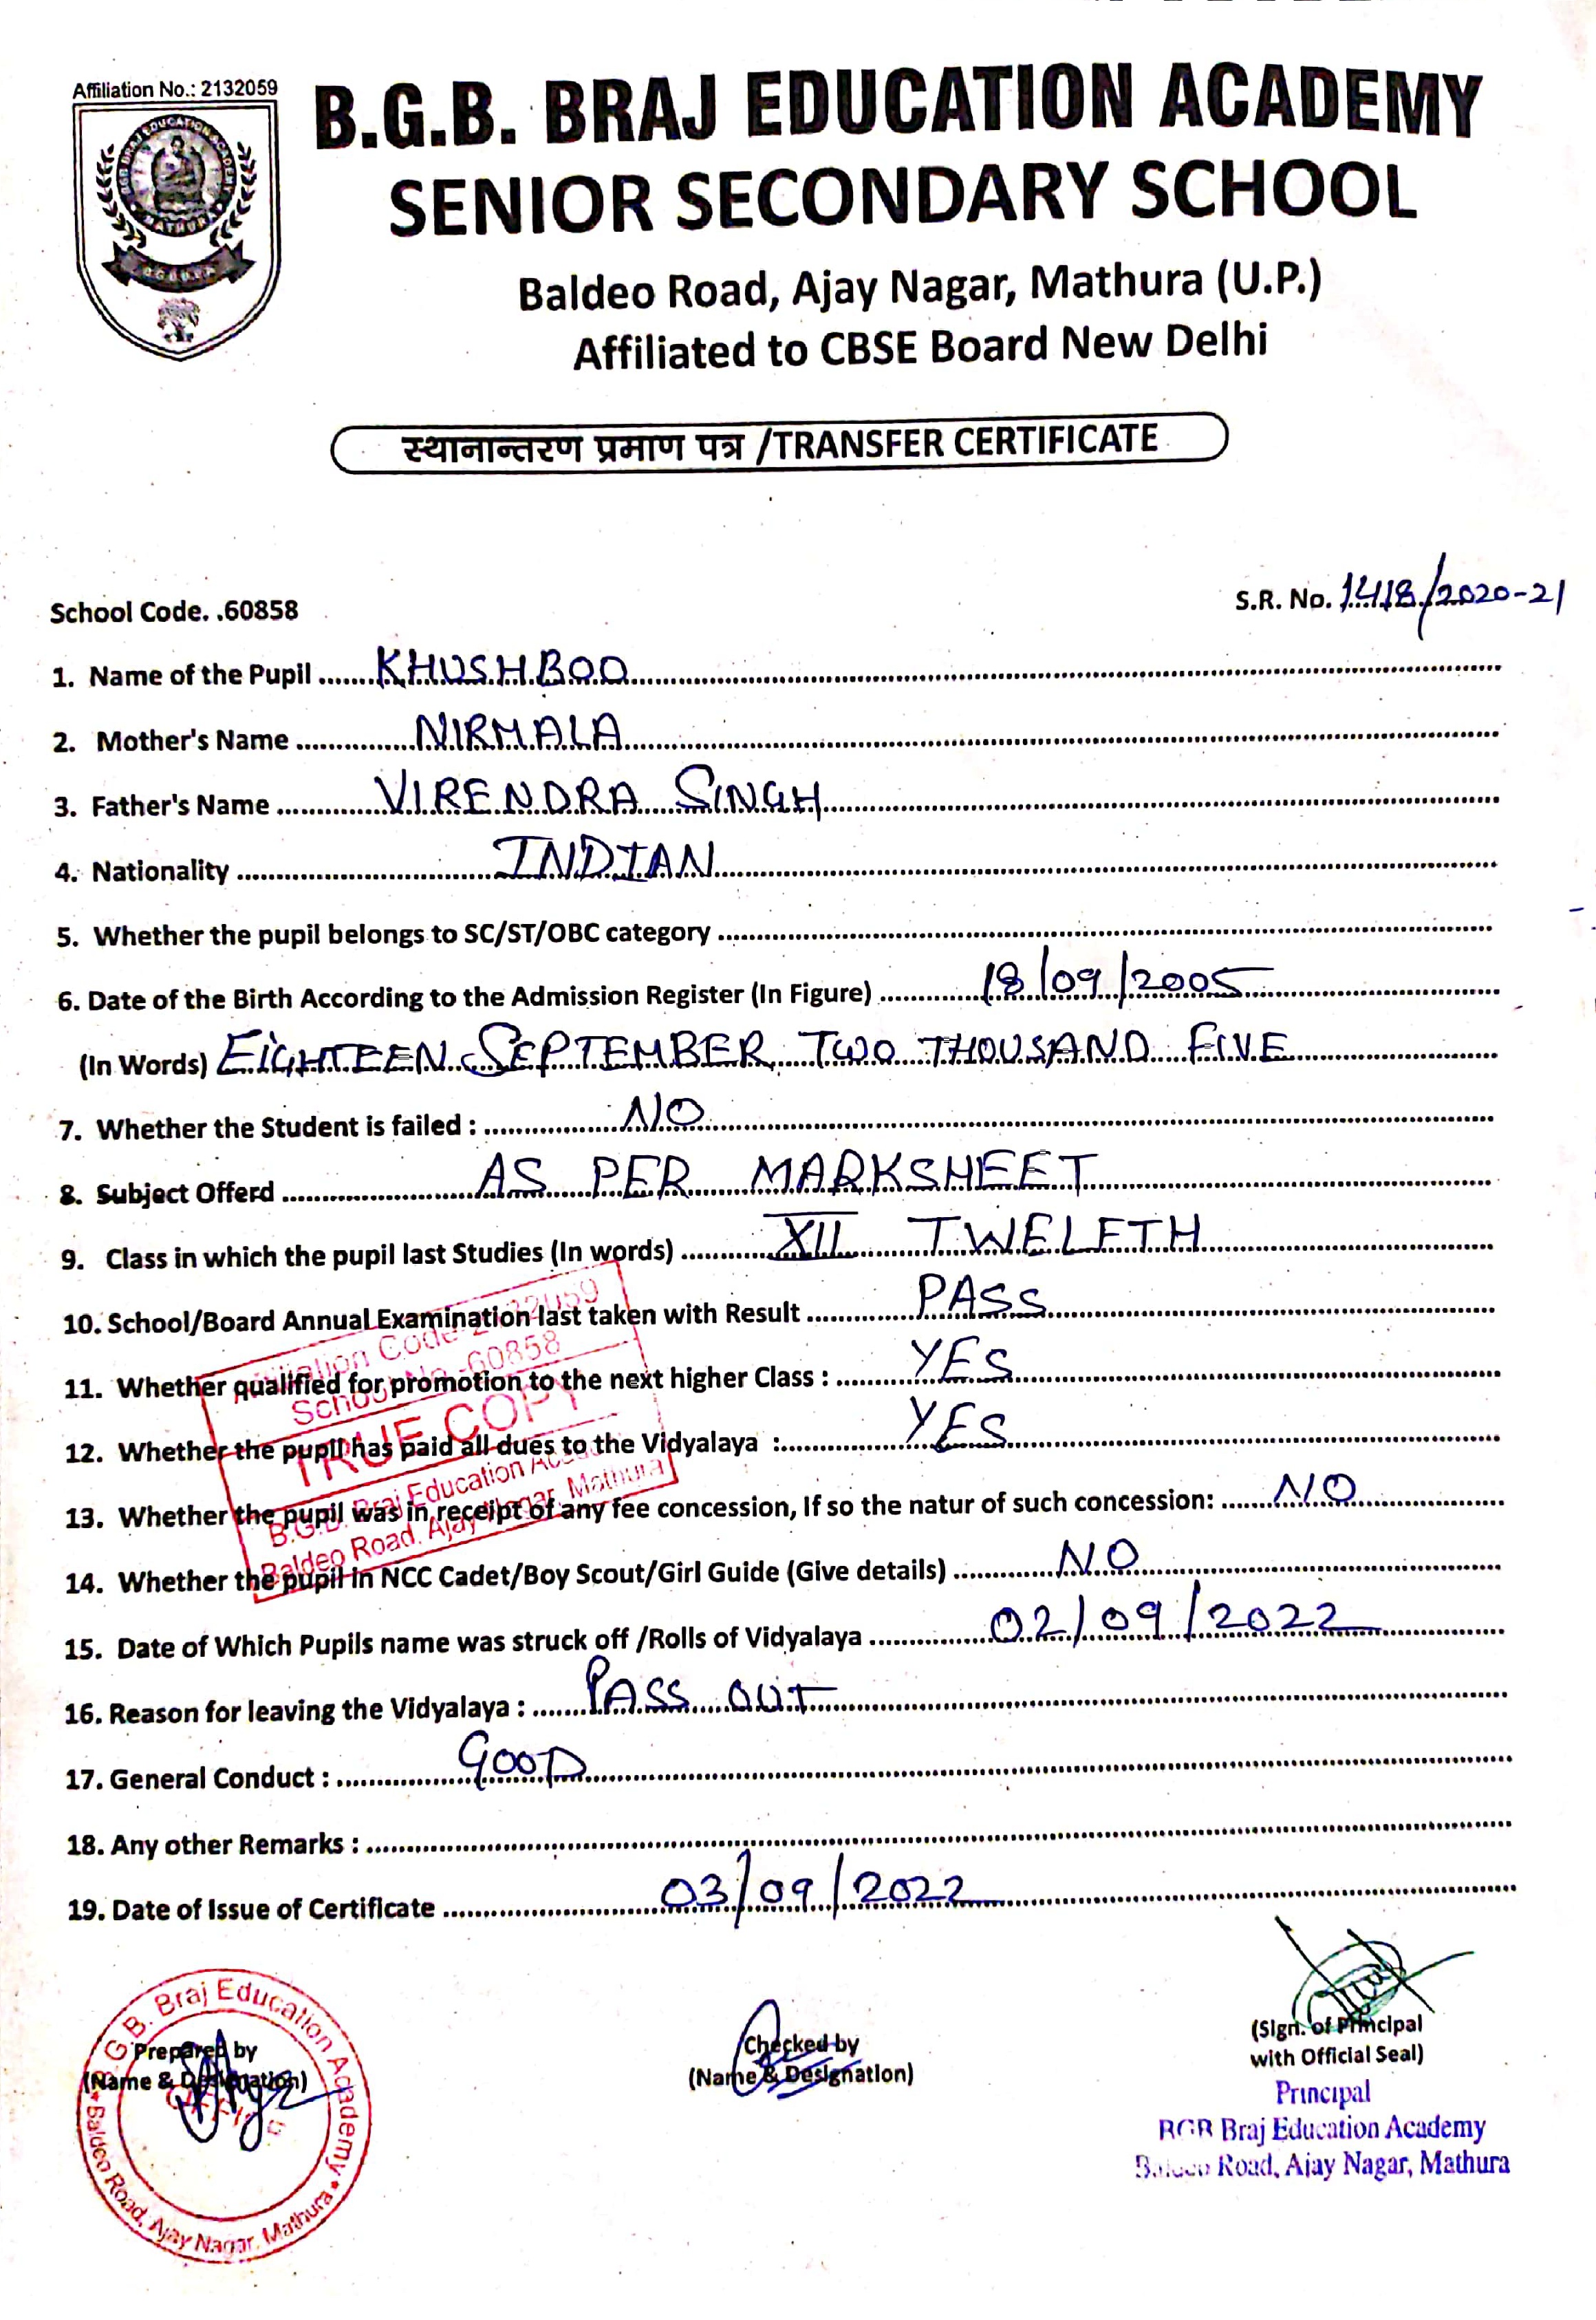 Affiliation No.: 2132059
B.G.B. BRAJ EDUCATION ACADEMY
SENIOR SECONDARY SCHOOL
Baldeo Road, Ajay Nagar, Mathura (U.P.)
Affiliated to CBSE Board New Delhi
स्थानान्तरण प्रमाण पत्र /TRANSFER CERTIFICATE
School Code. .60858
S.R. No. 1418/2020-21
1. Name of the Pupil ....... KHUSHBOO
2. Mother's Name .............. NIRMALA
3. Father's Name ............ VIRENDRA SINGH
4. Nationality .............................. INDIAN
5. Whether the pupil belongs to SC/ST/OBC category ..............
6. Date of the Birth According to the Admission Register (In Figure) ............ 18/09/2005
(In Words) EIGHTEEN SEPTEMBER TWO THOUSAND FIVE
7. Whether the Student is failed : ................ NO
8. Subject Offerd ...................... AS PER MARKSHEET
9. Class in which the pupil last Studies (In words) .......... XII TWELFTH
10. School/Board Annual Examination last taken with Result ............ PASS
11. Whether qualified for promotion to the next higher Class : ......... YES
12. Whether the pupil has paid all dues to the Vidyalaya :.............. YES
13. Whether the pupil was in receipt of any fee concession, If so the natur of such concession: ...... NO
14. Whether the pupil in NCC Cadet/Boy Scout/Girl Guide (Give details) ............ NO
15. Date of Which Pupils name was struck off /Rolls of Vidyalaya .............. 02/09/2022
16. Reason for leaving the Vidyalaya : ....... PASS OUT
17. General Conduct : ................ GOOD
18. Any other Remarks : ..............
19. Date of Issue of Certificate ........................ 03/09/2022
School No -60858
TRUE COPY
Baldeo Road, Ajay Nagar, Mathura
B.G.B. Braj Education Academy
Baldeo Road, Ajay Nagar, Mathura
Prepared by
(Name & Designation)
Checked by
(Name & Designation)
(Sign. of Principal
with Official Seal)
Principal
BGB Braj Education Academy
Baldeo Road, Ajay Nagar, Mathura